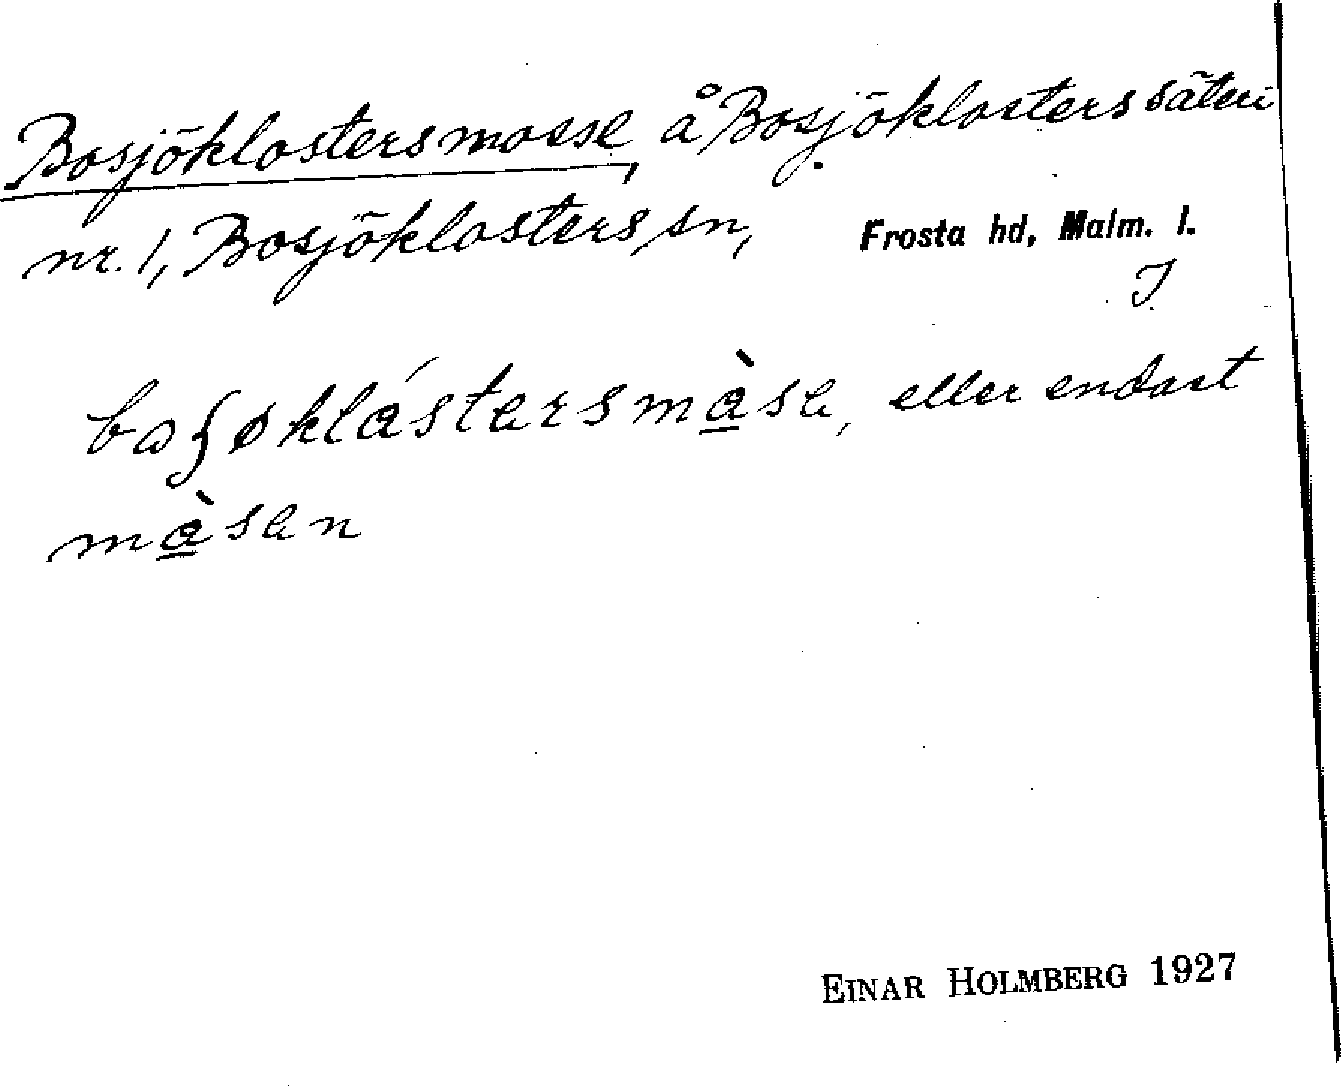 Bosjöklostersmosse, å Bosjöklosters säteri
nr. 1, Bosjöklosters sn, Frosta hd, Malm. l.
J
boʃøklástersmàse, eller endast
màsen
EINAR HOLMBERG 1927